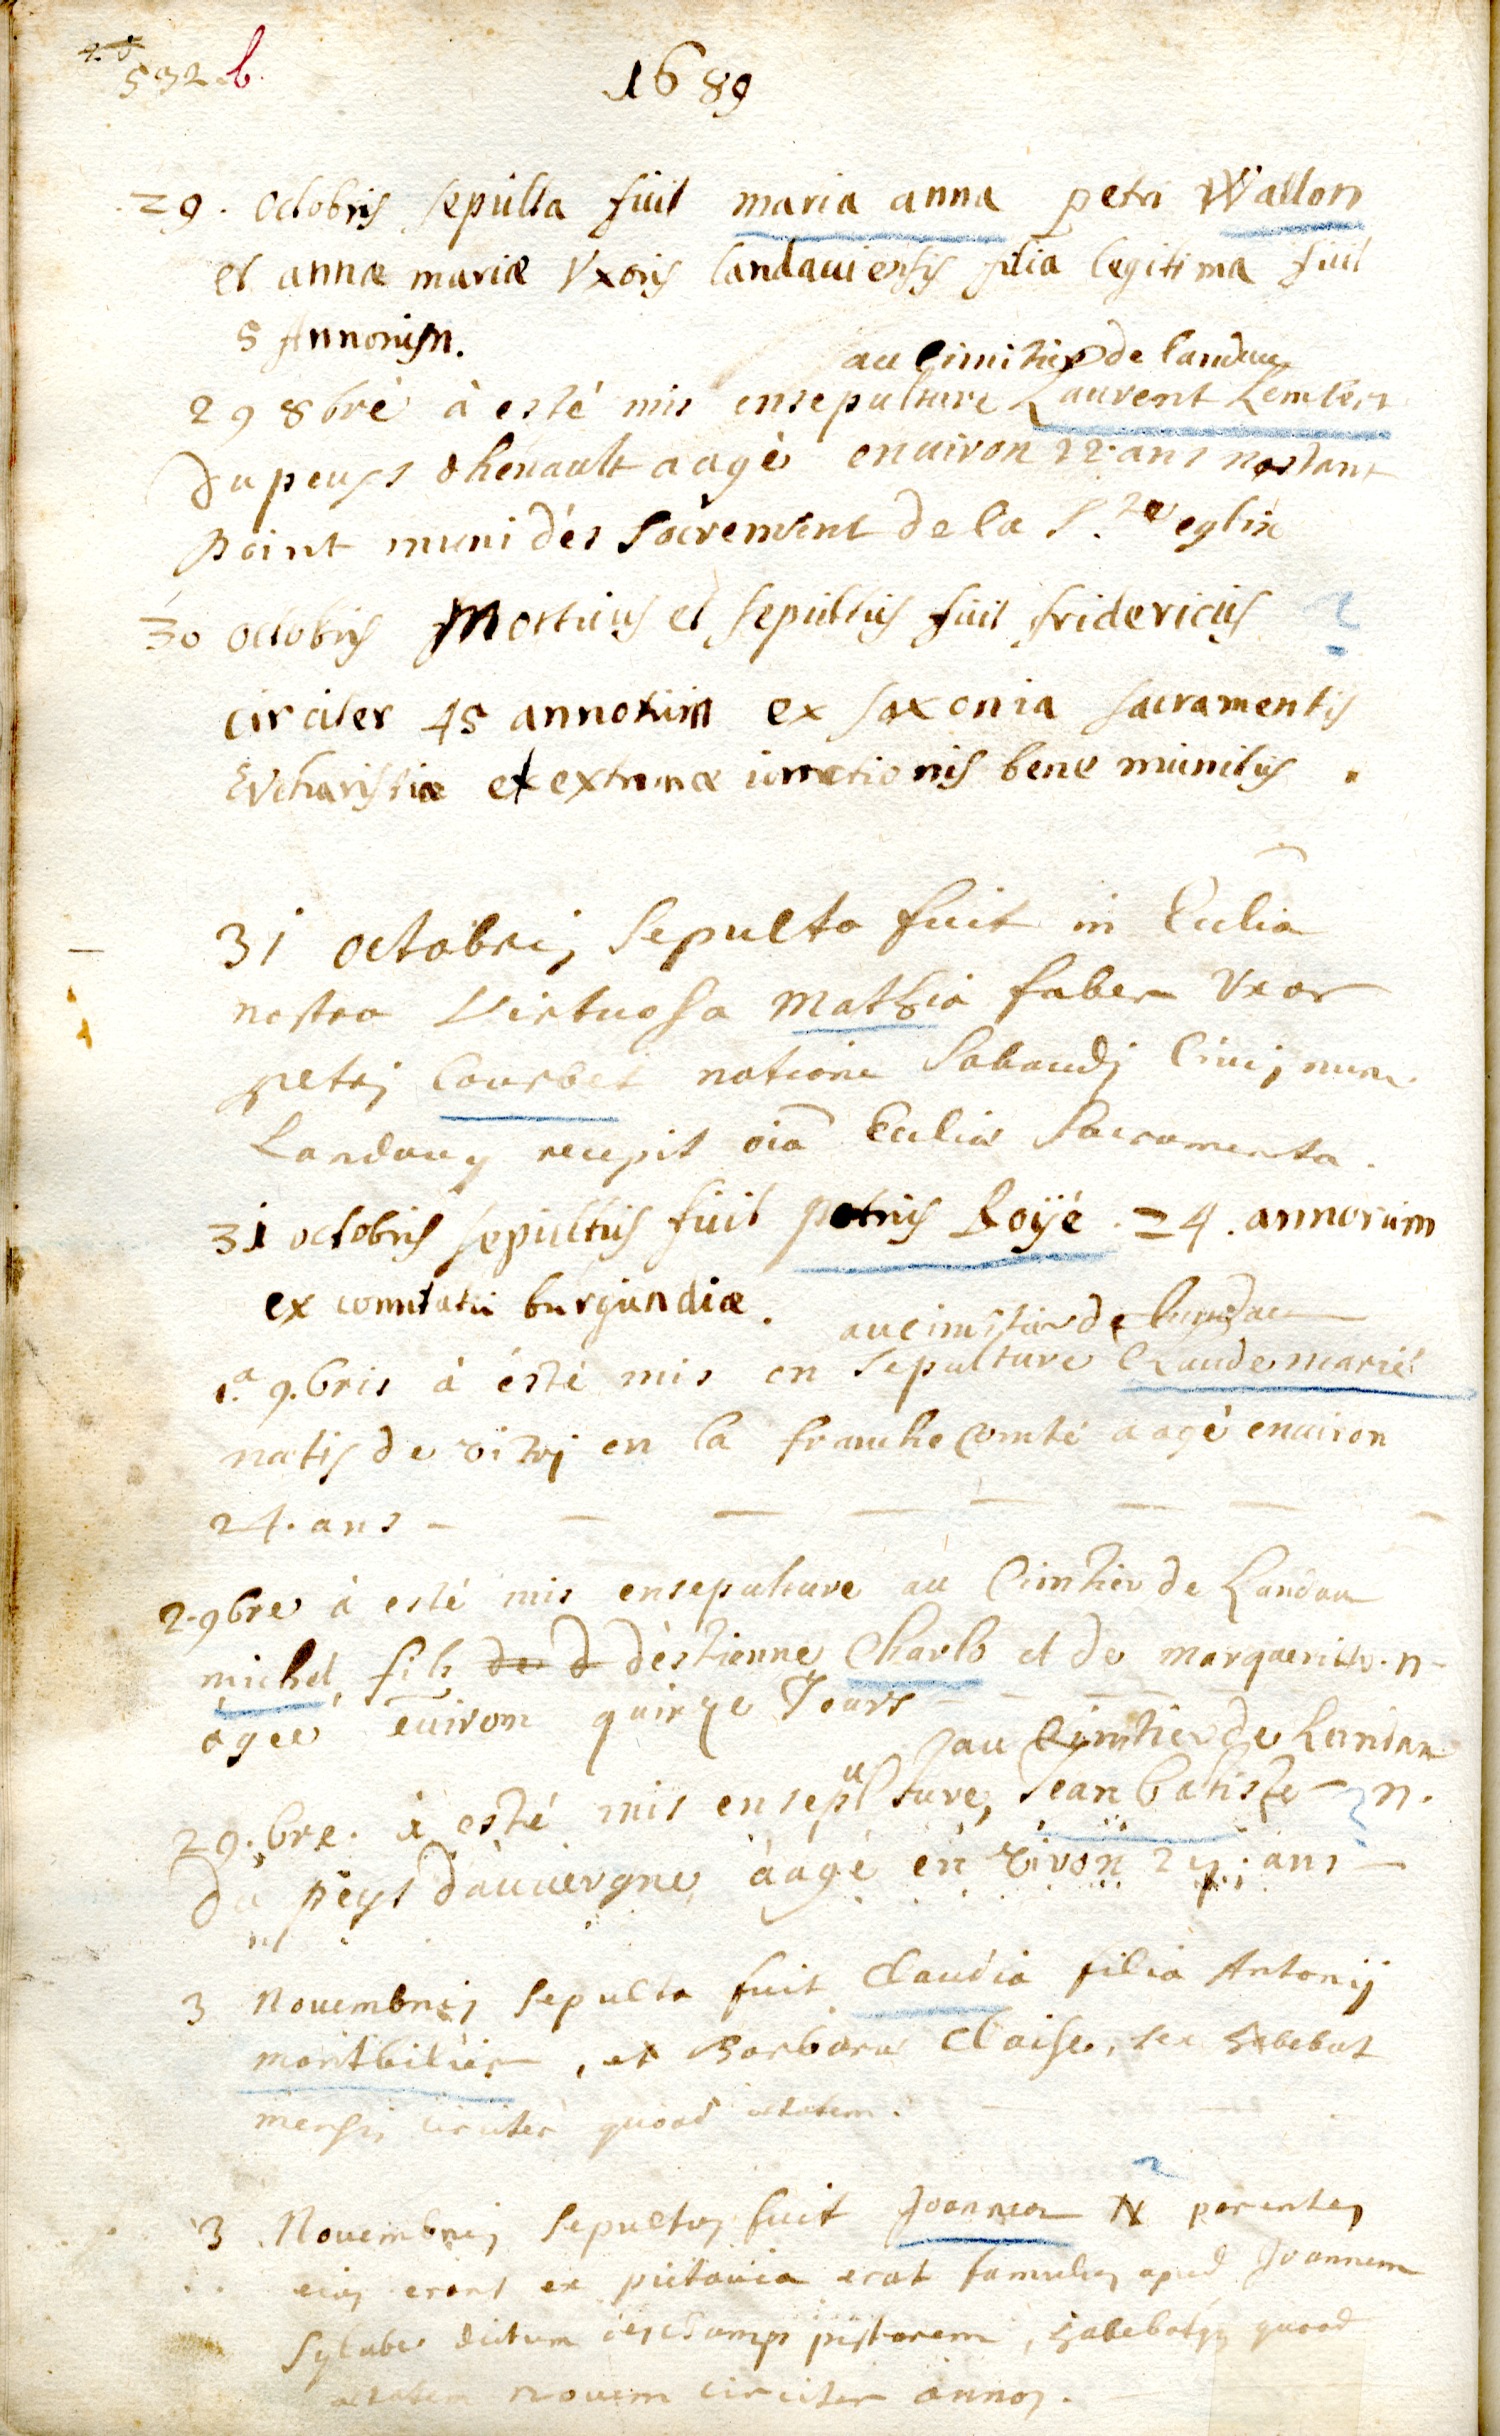 592 b.
1689
29. octobris sepulta fuit maria anna petri Wallon
et annæ mariæ Vxoris landauiensis filia legitima fuit
5 Annorum.
au Cimitier de landau
29 8bre à esté mis ensepulture Laurent Lembert
du peuys dhenault aagé enuiron 22. ans nestant
point muni dés Sacrement de la Ste eglise
30 octobris Mortuus et sepultus fuit fridericus
circiter 45 annorum ex saxonia sacramentis
Eucharistiæ et extremæ unctionis bene munitus.
31 octobris sepulta fuit in Ecclia
nostra Virtuosa Mathia faber Vxor
petri Courbet natione Sabaudi Ciuis nunc
Landauy recepit oia Ecclia Sacramenta.
31 octobris sepultus fuit petrus Royé. 24. annorum
ex comitatu burgundiæ.
au cimitier de landau
1.a 9.bris à ésté mis en sepulture Claude marié
natif de vitri en la franche Comté aagé enuiron
24. ans
2. 9bre à esté mis ensepulture au Cimtier de Landau
michel, fils de d déstienne Charlo et de marguerite. n
ágeé enuiron quinze Jours
au Cimtier de Landau
2 9.bre. à esté mis ensepulture, Jean batiste n.
du peys dauuergne, áagé en viron ans
3 Nouembris sepulta fuit Claudia filia Antonij
montbilier, et Barbara Claise, sex habebat
mensis circiter quoad ætatem.
3 Nouembris sepultus fuit Joannes N parentes
eius erant ex pictauia erat famulus apud Joannem
Sylabe dictum deschamps pistorem, habebatqz quoad
ætatem nouem circiter annos.